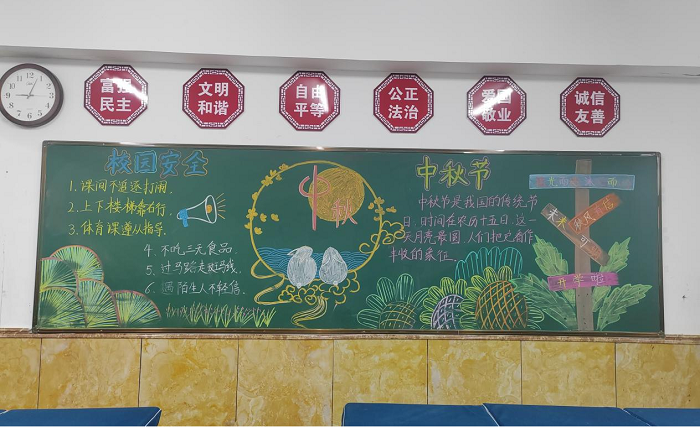 富强
民主
文明
和谐
自由
平等
公正
法治
爱国
敬业
诚信
友善
校园安全
1. 课间不追逐打闹.
2. 上下楼梯靠右行.
3. 体育课遵从指导.
4. 不吃三无食品.
5. 过马路走斑马线.
6. 遇陌生人不轻信.
中秋
中秋节
中秋节是我国的传统节
日，时间在农历十五日，这一
天月亮最圆，人们把它看作
丰收的象征
未来
开学啦